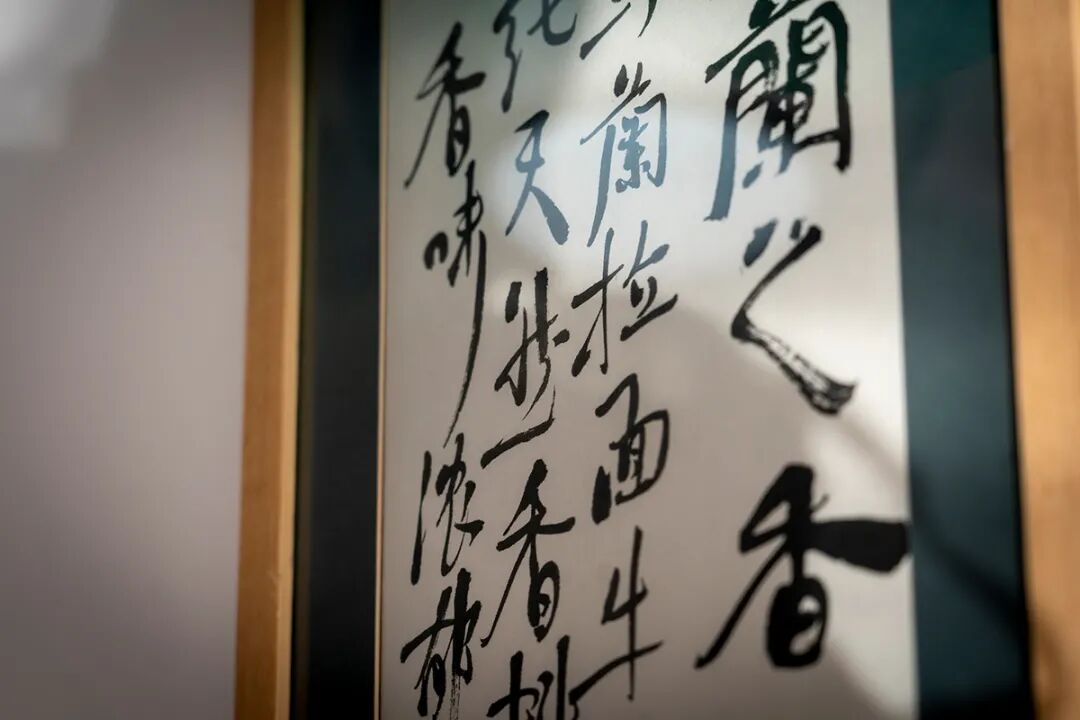 蘭之香
蘭拉面牛
纯天然香
香味浓郁